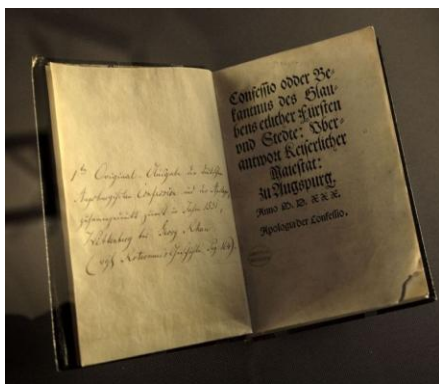 1te Original-Ausgabe der deutschen
Augsburgischen Confession und der Apologie,
zusammengedruckt zuerst im Jahre 1531,
Wittenberg bei Georg Rhau
Confessio odder Be-
kantnus des Glau-
bens etlicher Fürsten
vnd Stedte: Vber-
antwort Keiserlicher
Maiestat:
zu Augspurg.
Anno M. D. XXX.
Apologia der Confessio.